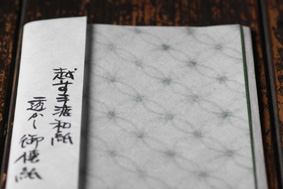 越前手漉和紙
透かし御懐紙